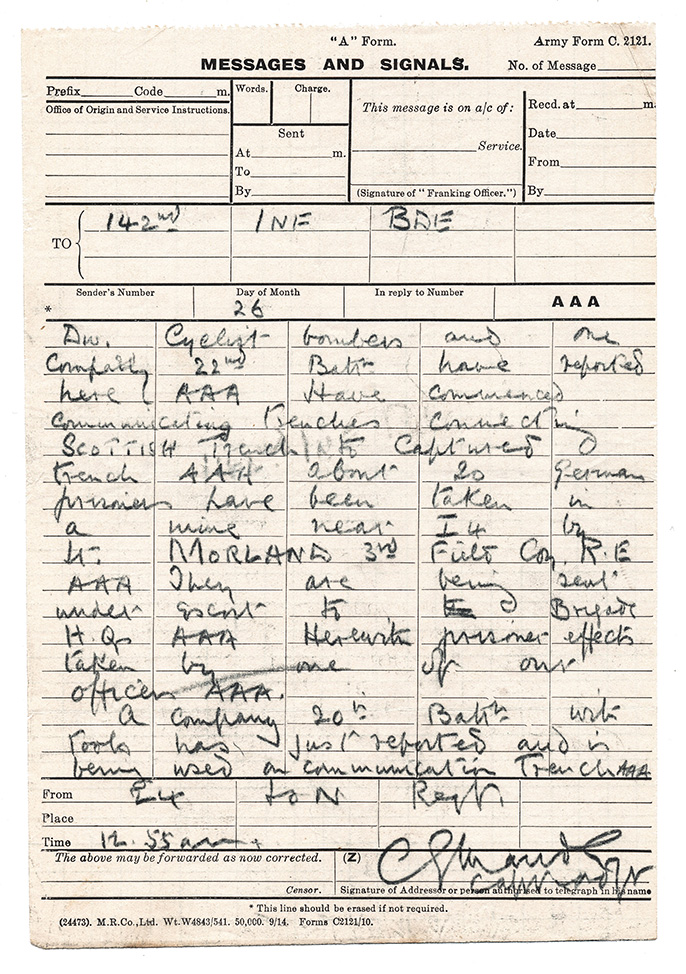 "A" Form. Army Form C. 2121.
MESSAGES AND SIGNALS. No. of Message
Prefix Code m. Words. Charge. This message is on a/c of: Recd. at m.
Office of Origin and Service Instructions. Sent Service. Date
At m. From
To
By (Signature of "Franking Officer.") By
TO 142nd INF BDE
Sender's Number Day of Month In reply to Number AAA
* 26
Div. Cyclist bombers and one
Company 22nd Battn have reported
here AAA Have commenced
communicating trenches connecting
SCOTTISH Trench to Captured
trench AAA about 20 German
prisoners have been taken in
a mine near I4 by
Lt. MORLAND 3rd Field Coy. R.E
AAA They are being sent
under escort to Brigade
H.Qs AAA Herewith prisoner effects
taken by one of our
officers AAA.
A company 20th Battn with
tools has just reported and is
being used on communication Trench AAA
From 24 LON Regt
Place
Time 12.55 am.
The above may be forwarded as now corrected. (Z)
Censor. Signature of Addressor or person authorised to telegraph in his name
* This line should be erased if not required.
(24473). M.R.Co., Ltd. Wt.W4843/541. 50,000. 9/14. Forms C2121/10.